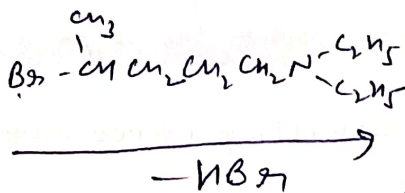 CH3
Br - CH CH2 CH2 CH2 N - C2H5
C2H5
- HBr